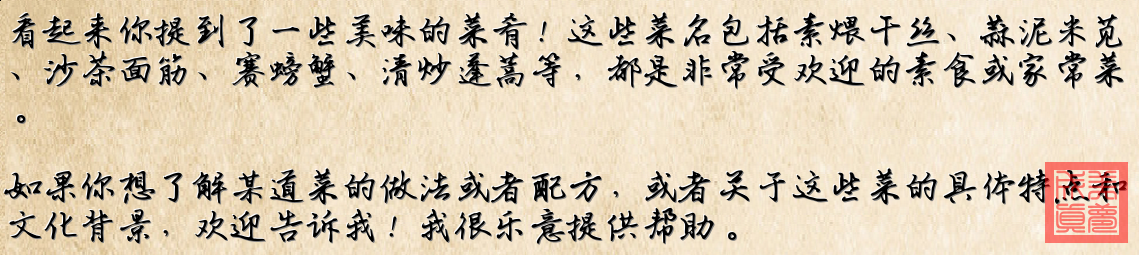 看起来你提到了一些美味的菜肴！这些菜名包括素煨干丝、蒜泥米苋
、沙茶面筋、赛螃蟹、清炒蓬蒿等，都是非常受欢迎的素食或家常菜
。
如果你想了解某道菜的做法或者配方，或者关于这些菜的具体特点和
文化背景，欢迎告诉我！我很乐意提供帮助。